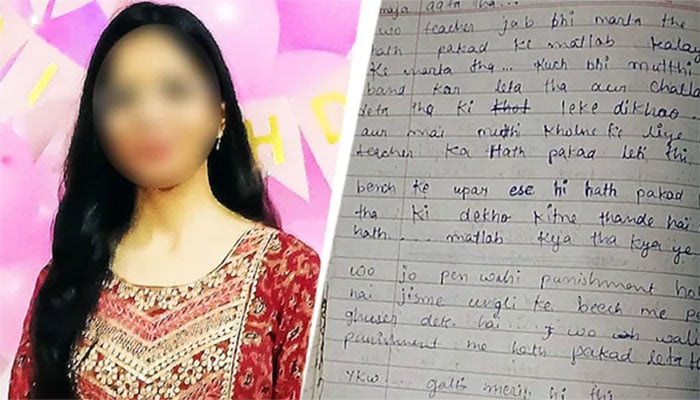 I
H
D
maja aata tha...
wo teacher jab bhi marta the
hath pakad ke matlab kalay
ke marta tha... kuch bhi mutthi
band kar leta tha aur challa
deta tha ki leke dikhao
aur mai muthi kholne ke liye
teacher ka Hath pakad leti thi
bench ke upar ese hi hath pakad
tha ki dekho kitne thande hai
hath.... matlab kya tha kya ye
wo jo pen wahi punishment hot
hai jisme ungli ke beech me pe
ghuser dete hai... wo wali
punishment me hath pakad leta t
YKW... galti meri hi thi